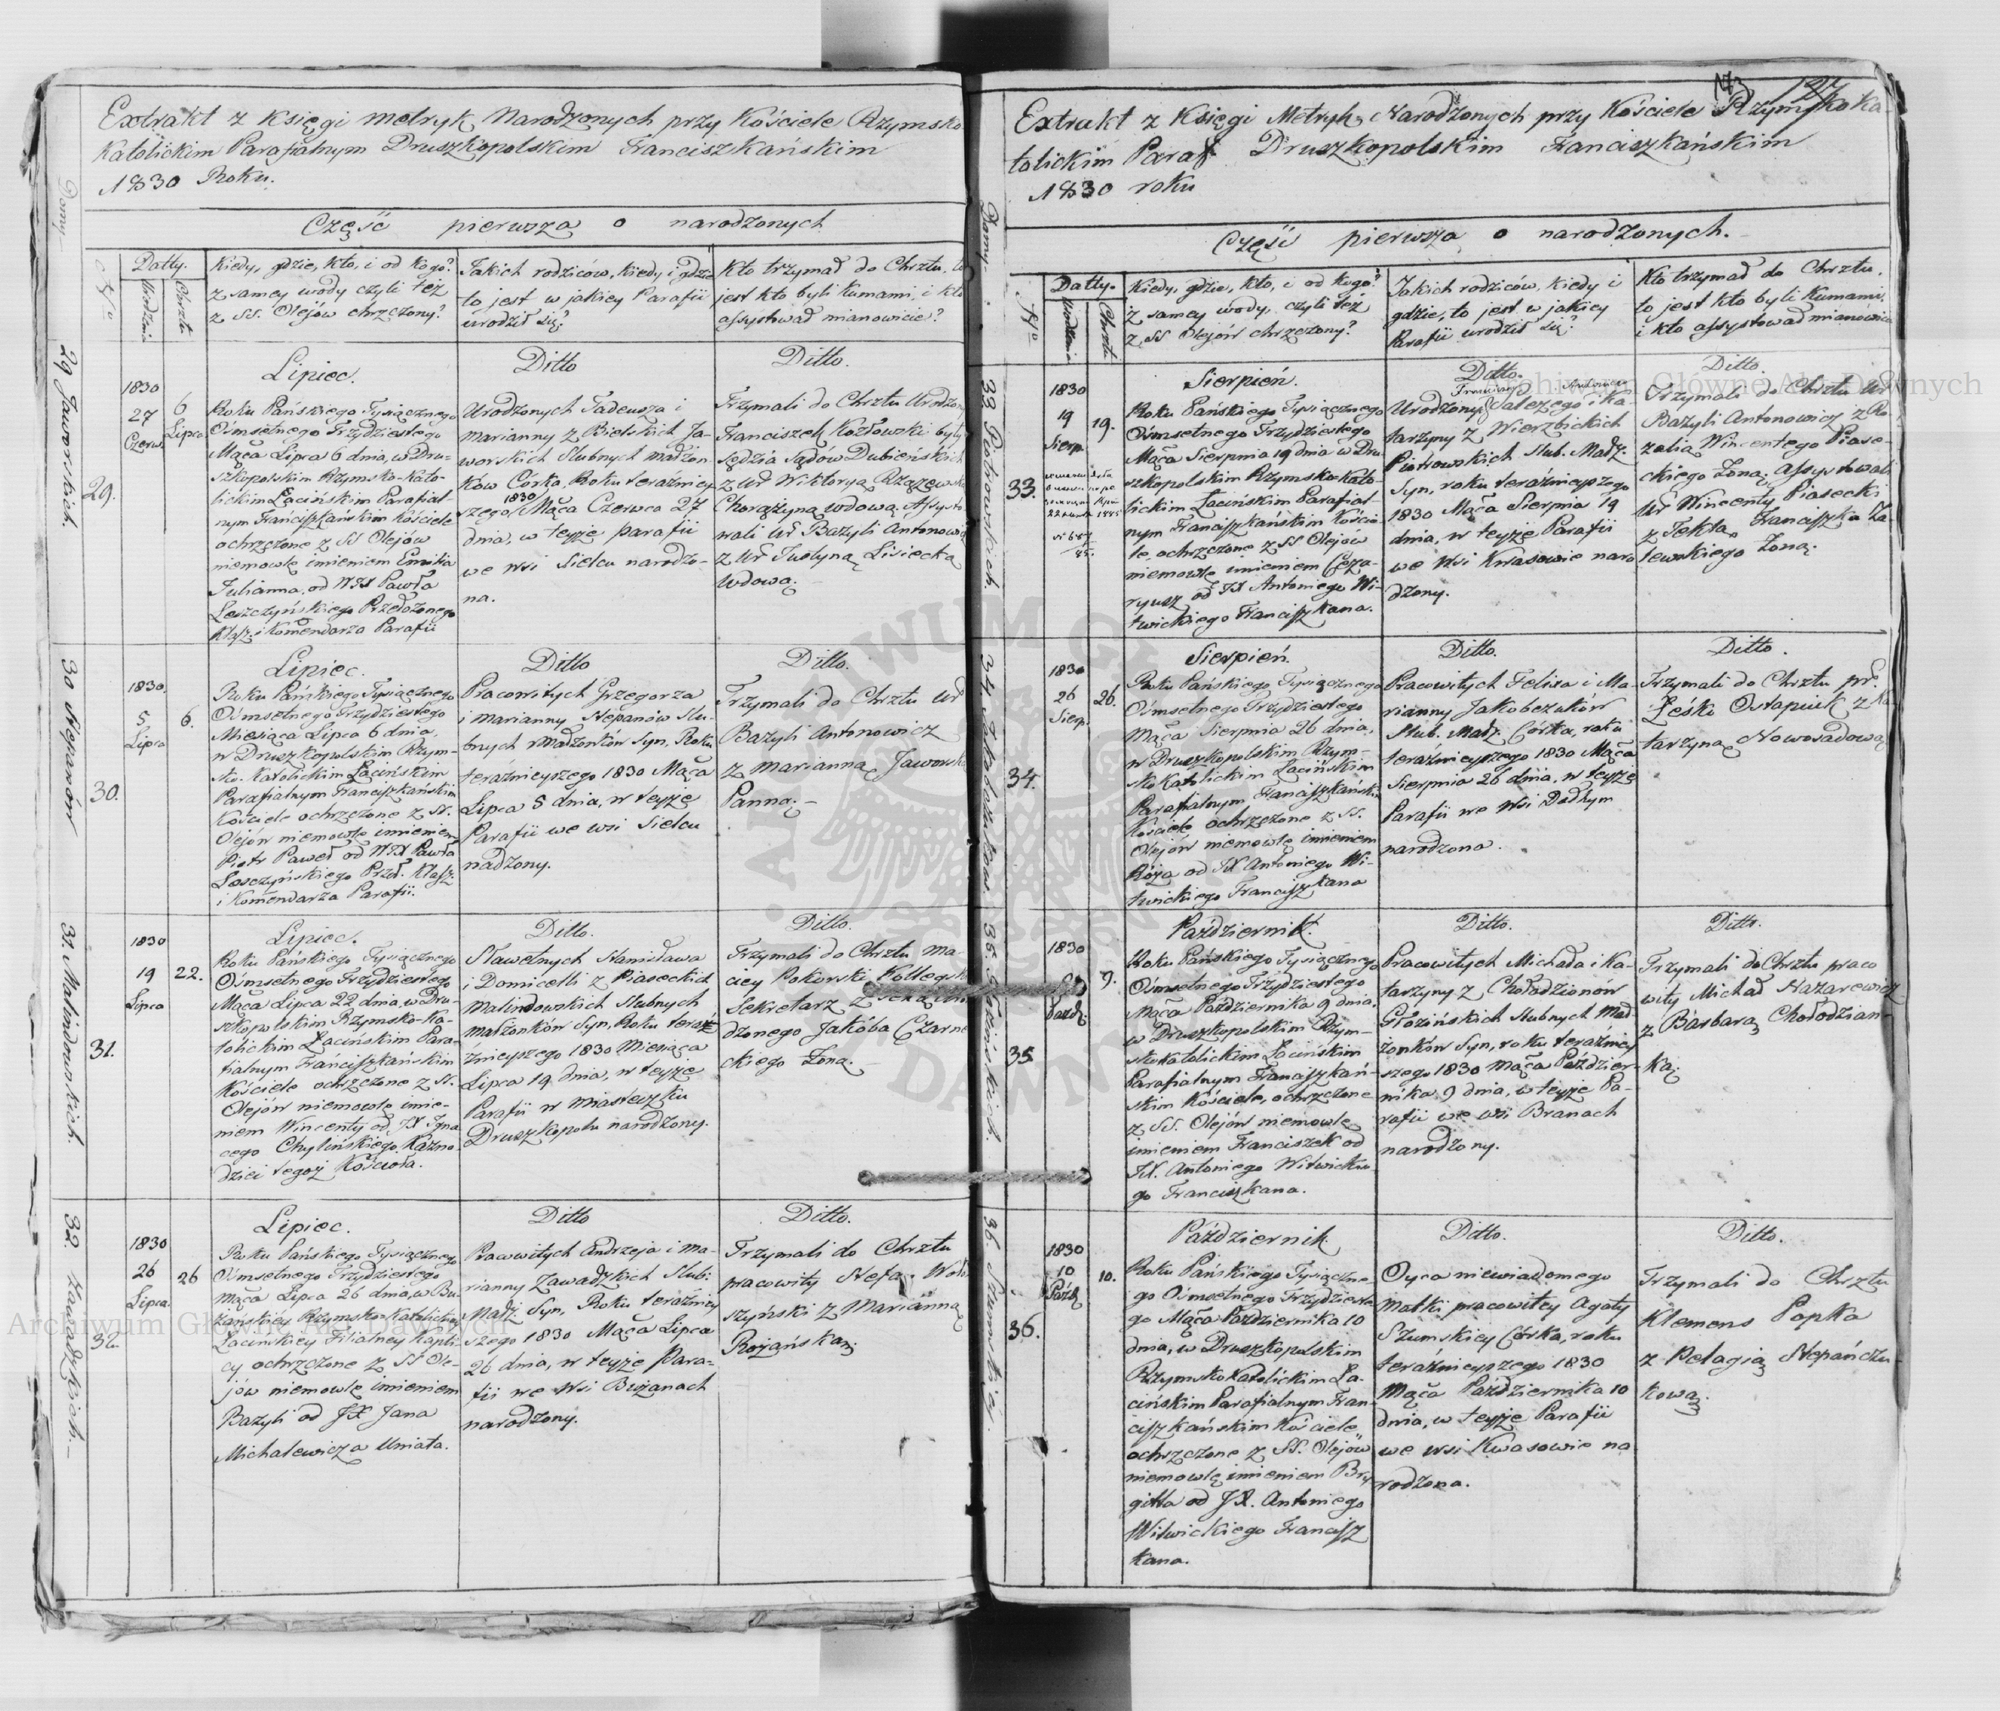 Extrakt z Księgi metryk Narodzonych przy Kościele Rzymsko
Katolickim Parafialnym Druszkopolskim Franciszkańskim
1830 Roku.
Część pierwsza o narodzonych
Domy.
Datty.
Urodzenia
Chrztu
Kiedy, gdzie, kto, i od kogo?
z samey wody czyli też
z SS. Olejów chrzczony?
Jakich rodziców, kiedy i gdzie
to jest w jakiey Parafii
urodził się?
Kto trzymał do Chrztu, to
jest kto byli Kumami, i kto
assystował mianowicie?
29 Jaworskich.
29.
1830
27
Czerw.
6
Lipca
Lipiec.
Roku Pańskiego Tysiącznego
Ośmsetnego Trzydziestego
Mąca Lipca 6 dnia, w Dru-
szkopolskim Rzymsko-Kato-
lickim Łacińskim Parafial-
nym Franciszkańskim Kościele
ochrzczone z SS Olejów
niemowlę imieniem Emilia
Julianna, od WJX Pawła
Leszczyńskiego Przełożonego
Klasz. i Komendarza Parafii
Ditto
Urodzonych Tadeusza i
Marianny z Bielskich Ja-
worskich Slubnych małżon-
ków Córka, Roku teraźniey-
szego 1830 Mąca Czerwca 27
dnia, w teyże parafii
we wsi Sielcu narodzo-
na.
Ditto.
Trzymali do Chrztu Urodzony
Franciszek Kozłowski były
Sędzia Sądów Dubieńskich
z Ur Wiktoryą
Chorążyną wdową, Assysto-
wali Ur Bazyli Antonowicz
z Ur Justyną Lisiecką
Wdową.
30 Stepanów
30.
1830.
5
Lipca
6.
Lipiec.
Roku Pańskiego Tysiącznego
Ośmsetnego Trzydziestego
Miesiąca Lipca 6 dnia,
w Druszkopolskim Rzym-
sko-Katolickim Łacińskim
Parafialnym Franciszkańskim
Kościele ochrzczone z SS.
Olejów niemowlę imieniem
Piotr Paweł od WJX Pawła
Leszczyńskiego Przeł. Klasz.
i Komendarza Parafii.
Ditto
Pracowitych Grzegorza
i Marianny Stepanów Slu-
bnych Małżonków Syn, Roku
teraźnieyszego 1830 Mąca
Lipca 5 dnia, w teyże
Parafii we wsi Sielcu
nadzony.
Ditto.
Trzymali do Chrztu Ur
Bazyli Antonowicz
z Marianną Jaworską
Panną.
31. Malinowskich.
31.
1830
19
Lipca
22.
Lipiec.
Roku Pańskiego Tysiącznego
Ośmsetnego Trzydziestego
Mąca Lipca 22 dnia, w Dru-
szkopolskim Rzymsko-Ka-
tolickim Łacińskim Para-
fialnym Franciszkańskim
Kościele ochrzczone z SS.
Olejów niemowlę imie-
niem Wincenty od JX Igna
cego Chylińskiego Kazno-
dziei tegoż Kościoła.
Ditto.
Sławetnych Stanisława
i Domicelli z Piaseckich
Malinowskich Slubnych
małżonków Syn, Roku teraź-
źnieyszego 1830 Miesiąca
Lipca 19 dnia, w teyże
Parafii w miasteczku
Druszkopolu narodzony.
Ditto.
Trzymali do Chrztu Ma
ciey Pokorski
Sekretarz z
dzonego Jakóba Czarne
ckiego Żoną.
32. Zawadzkich.
32.
1830
26
Lipca.
26
Lipiec.
Roku Pańskiego Tysiącznego
Ośmsetnego Trzydziestego
Mąca Lipca 26 dnia, w Bu-
żańskiey Rzymsko-Katolickiey
Łacińskiey Filialney Kapli-
cy ochrzczone z SS Ole-
jów niemowlę imieniem
Bazyli od JX Jana
Michalewicza Uniata.
Ditto
Pracowitych Andrzeja i Ma-
rianny Zawadzkich Slub:
Małż Syn, Roku teraźniey
szego 1830 Mąca Lipca
26 dnia, w teyże Para-
fii we Wsi Bużanach
narodzony.
Ditto.
Trzymali do Chrztu
pracowity Stefan Woł
szyński z Marianną
Rożańską.
173
Extrakt z Księgi Metryk Narodzonych przy Kościele Rzymskoka
tolickim Paraf Druszkopolskim Franciszkańskim
1830 roku
Część pierwsza o narodzonych.
Domy.
Datty.
Urodzenia
Chrztu
Kiedy, gdzie, kto, i od kogo?
z samey wody, czyli też
z SS Olejów chrzczony?
Jakich rodziców, kiedy i
gdzie, to jest w jakiey
Parafii urodził się?
Kto trzymał do Chrztu,
to jest kto byli Kumami,
i kto assystował mianowicie
33 Piotrowskich.
33.
1830
19
Sierp.
19.
Sierpień.
Roku Pańskiego Tysiącznego
Ośmsetnego Trzydziestego
Mąca Sierpnia 19 dnia w Dru
szkopolskim Rzymsko-Kato-
lickim Łacińskim Parafial
nym Franciszkańskim Kościo
le, ochrzczone z SS Olejów
niemowlę imieniem Ceza-
ryusz od JX Antoniego Wi-
twickiego Franciszkana.
Ditto.
Urodzonych Salezego i Ka-
tarzyny z Wierzbickich
Piotrowskich Slub. Małż.
Syn, roku teraźnieyszego
1830 Mąca Sierpnia 19
dnia, w teyże Parafii
we Wsi Kwasowie naro
dzony.
Ditto
Trzymali do Chrztu Ur
Bazyli Antonowicz z Ro
zalią Wincentego Piase-
ckiego Żoną, assystowali
Ur Wincenty Piasecki
z Teklą Franciszka Za
lewskiego Żoną.
34.
1830
26
Sierp.
26.
Sierpień.
Roku Pańskiego Tysiącznego
Ośmsetnego Trzydziestego
Mąca Sierpnia 26 dnia,
w Druszkopolskim Rzym-
sko Katolickim Łacińskim
Parafialnym Franciszkańskim
Kościele ochrzczone z SS.
Olejów niemowlę imieniem
Róża od JX Antoniego Wi-
twickiego Franciszkana
Ditto.
Pracowitych Felixa i Ma-
rianny Jakobczuków
Slub. Małż. Córka, roku
teraźnieyszego 1830 Mąca
Sierpnia 26 dnia, w teyże
Parafii we Wsi
narodzona.
Ditto.
Trzymali do Chrztu pr.
Leśko Ostapiuk z Ka
tarzyną Nowosadową
35.
35
1830
9
Paźdz
9.
Październik.
Roku Pańskiego Tysiącznego
Ośmsetnego Trzydziestego
Mąca Października 9 dnia,
w Druszkopolskim Rzym-
skokatolickim Łacińskim
Parafialnym Franciszkań-
skim Kościele, ochrzczone
z SS. Olejów niemowlę
imieniem Franciszek od
JX. Antoniego Witwickie-
go Franciszkana.
Ditto.
Pracowitych Michała i Ka-
tarzyny z Chołodzionów
Głozińskich Slubnych Mał-
żonków Syn, roku teraźniey
szego 1830 Mąca Paździer-
nika 9 dnia, w teyże Pa-
rafii we wsi Branach
narodzony.
Ditto.
Trzymali do Chrztu praco
wity Michał Nazarewicz
z Barbarą Chołodzian-
ką.
36.
36.
1830
10
Paźdz
10.
Październik
Roku Pańskiego Tysiączne
go Ośmsetnego Trzydzieste
go Mąca Października 10
dnia, w Druszkopolskim
Rzymsko Katolickim Ła-
cińskim Parafialnym Fran-
ciszkańskim Kościele
ochrzczone z SS. Olejów
niemowlę imieniem Bry
gitta od JX. Antoniego
Witwickiego Francisz
kana.
Ditto.
Oyca niewiadomego
matki pracowitey Agaty
Szumskiey Córka, roku
teraźnieyszego 1830
Mąca Października 10
dnia, w teyże Parafii
we wsi Kwasowie na
rodzona.
Ditto.
Trzymali do Chrztu
Klemens Popka
z Pelagią Stepańczu-
kową.
Archiwum Główne Akt Dawnych